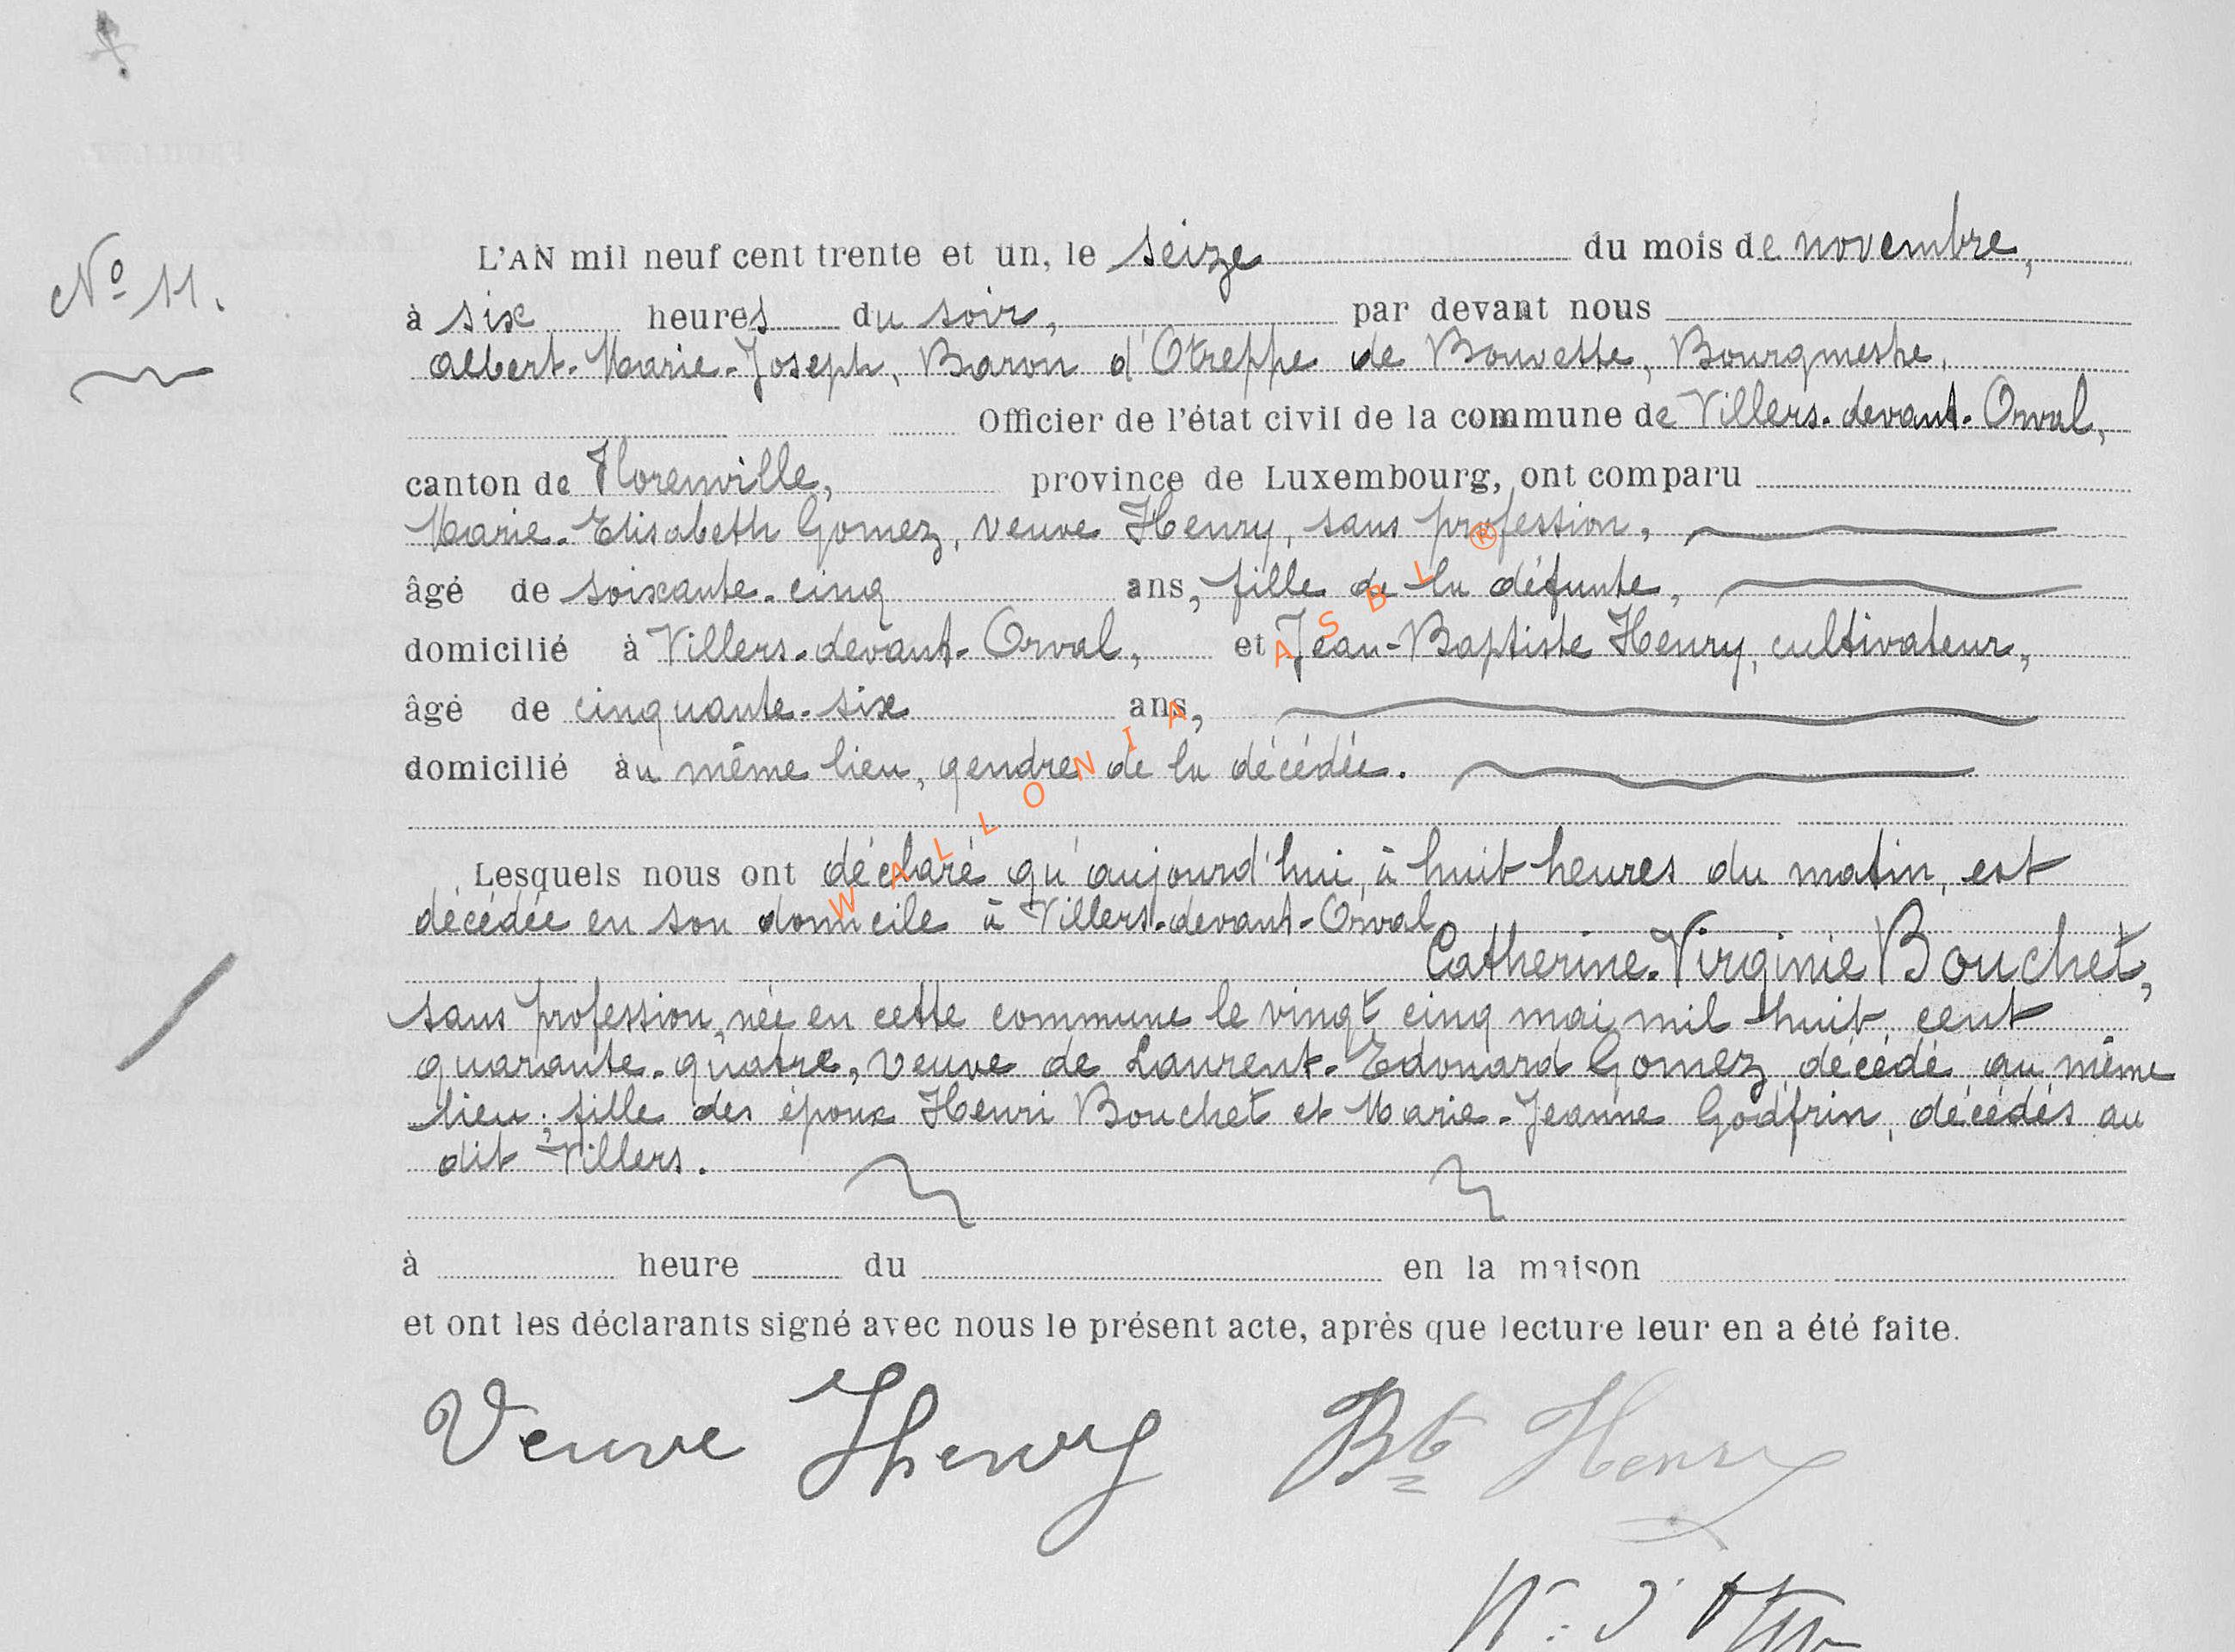 L'AN mil neuf cent trente et un, le seize du mois de novembre,
No 11.
à six heures du soir, par devant nous
Albert-Marie-Joseph, Baron d'Otreppe de Bouvette, Bourgmestre,
Officier de l'état civil de la commune de Villers-devant-Orval,
canton de Florenville, province de Luxembourg, ont comparu
Marie-Elisabeth Gomez, veuve Henry, sans profession,
âgé de soixante-cinq ans, fille de la défunte,
domicilié à Villers-devant-Orval, et Jean-Baptiste Henry, cultivateur,
âgé de cinquante-six ans,
domicilié au même lieu, gendre de la décédée.
Lesquels nous ont déclaré qu'aujourd'hui, à huit heures du matin, est
décédée en son domicile à Villers-devant-Orval
Catherine-Virginie Bouchet,
sans profession, née en cette commune le vingt cinq mai mil huit cent
quarante-quatre, veuve de Laurent-Edouard Gomez, décédé au même
lieu; fille des époux Henri Bouchet et Marie-Jeanne Godfrin, décédés au
dit Villers.
à heure du en la maison
et ont les déclarants signé avec nous le présent acte, après que lecture leur en a été faite.
Veuve Henry Bte Henry
WALLONIA ASBL ®